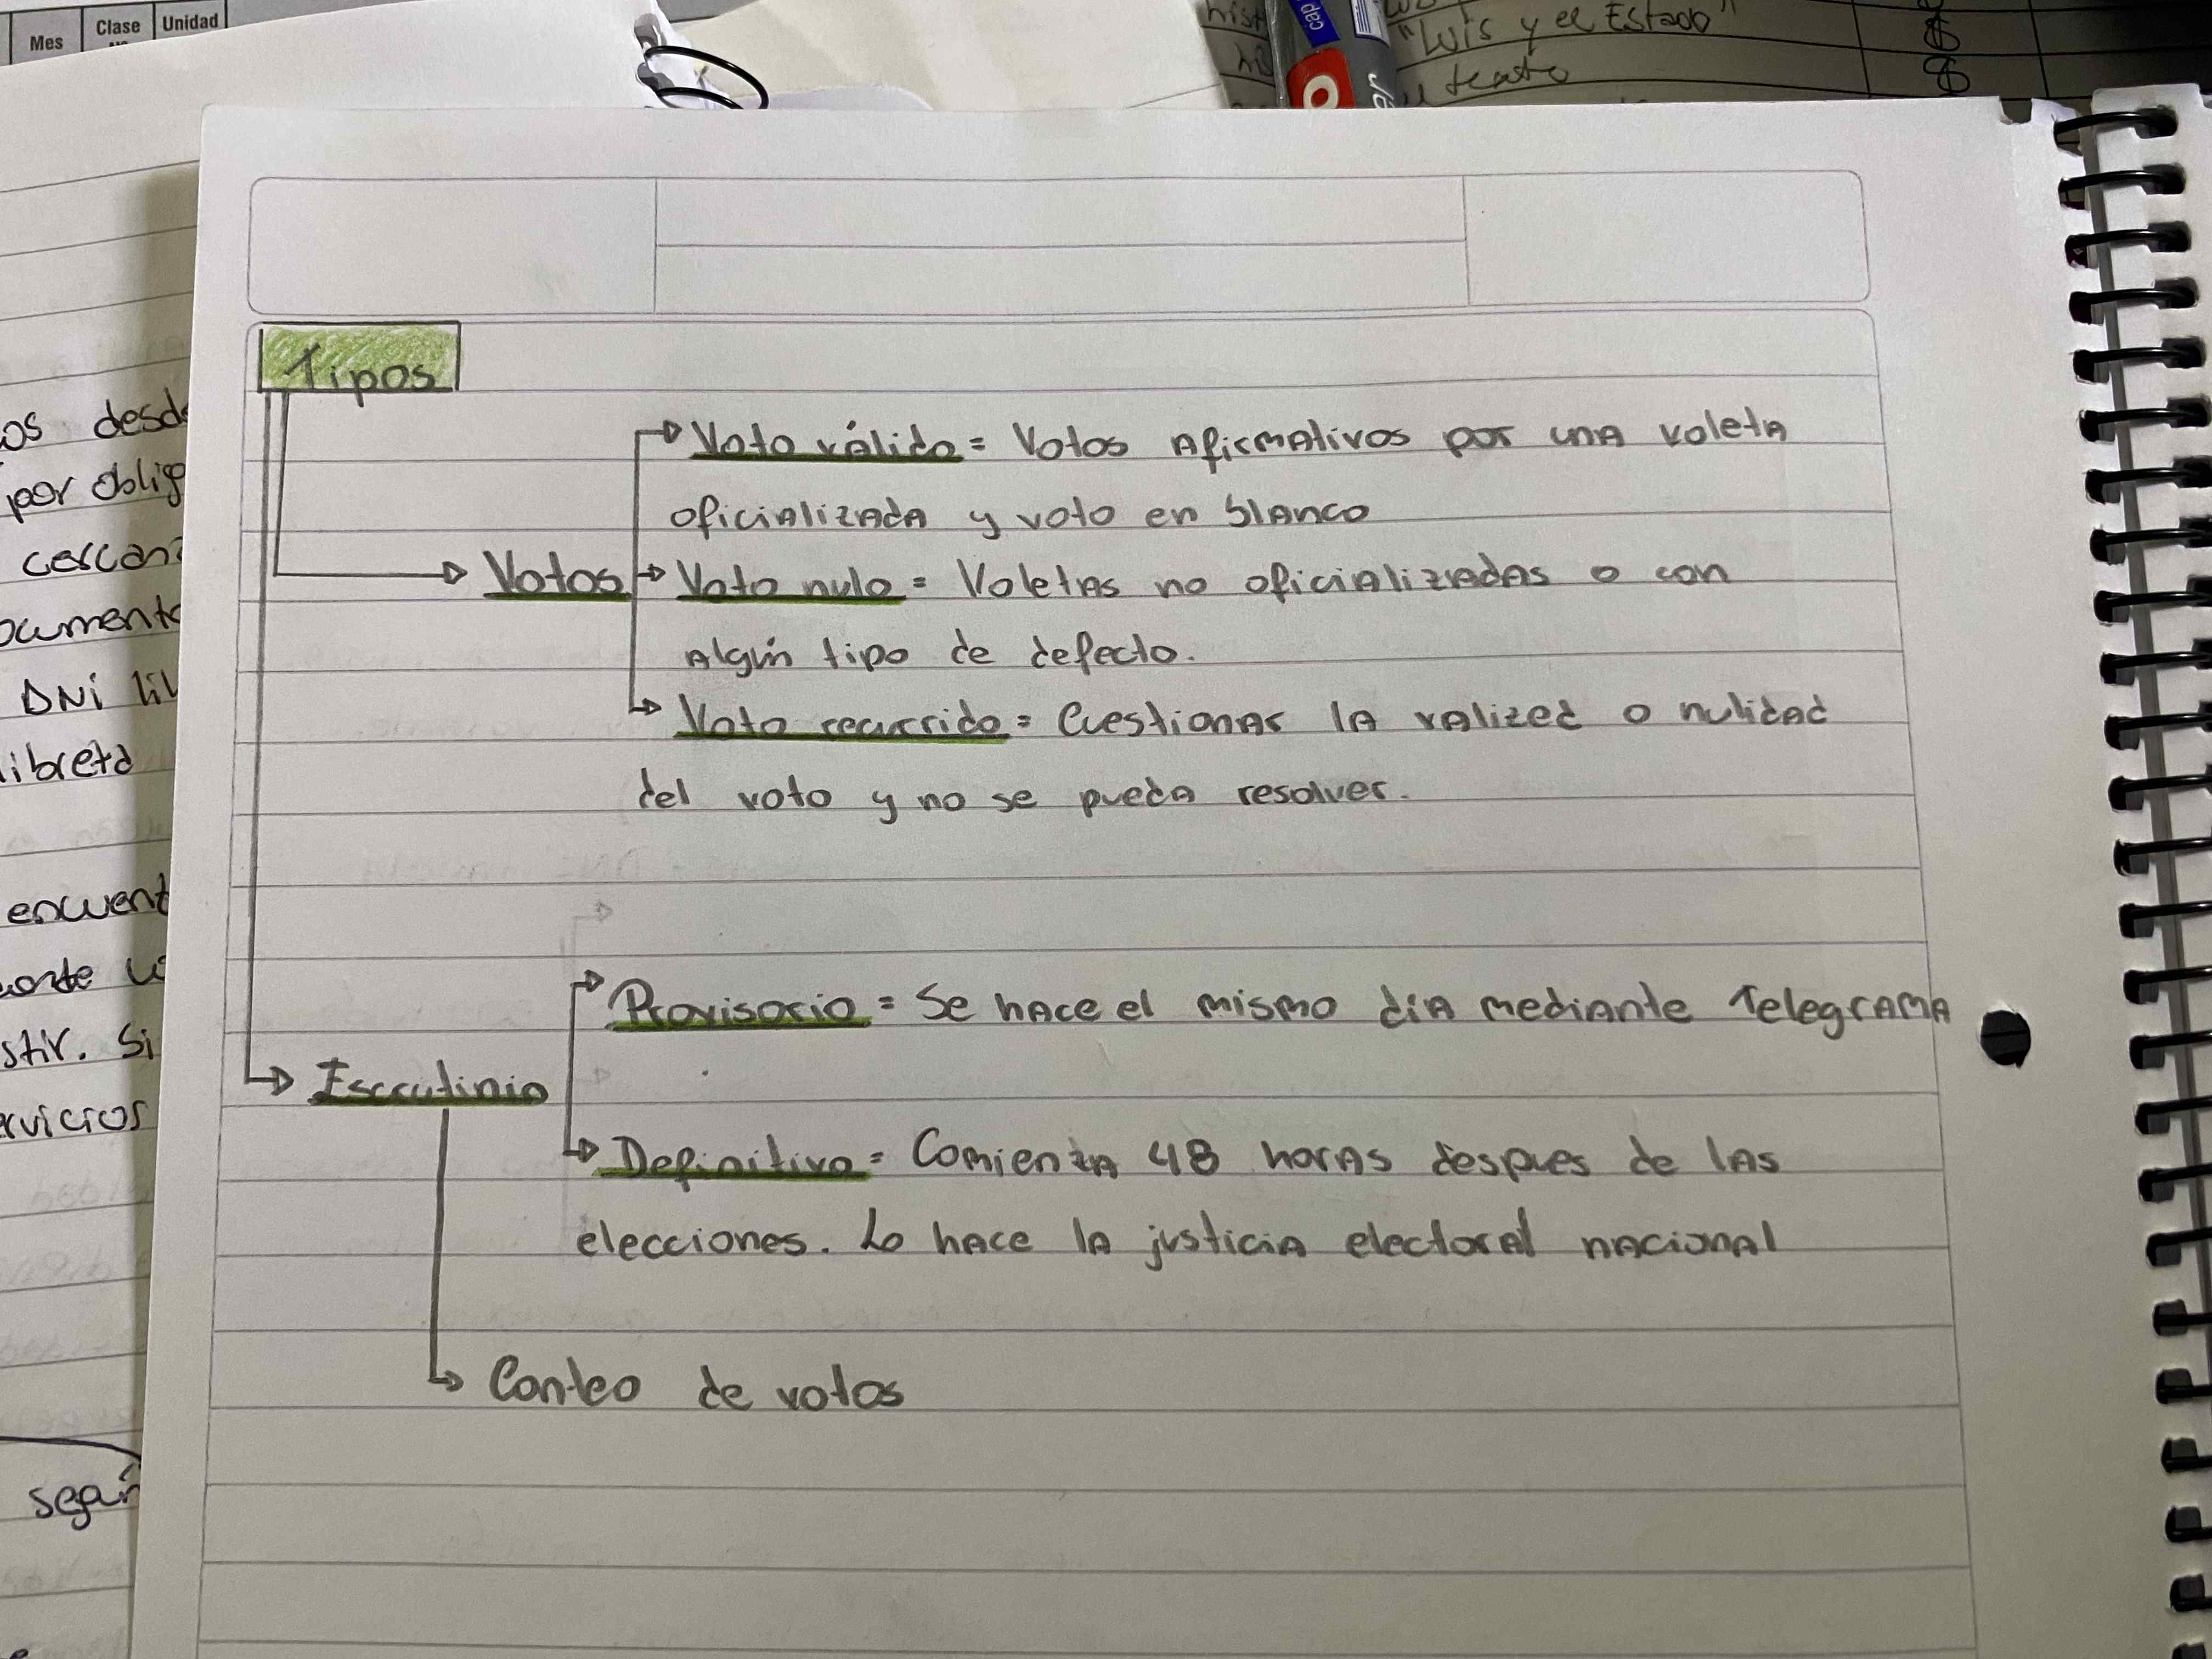 Mes
Clase
Unidad
"Luis y el Estado"
teatro
Tipos
Voto válido = Votos Afirmativos por una voleta
oficializada y voto en blanco
Votos
Voto nulo = Voletas no oficializadas o con
Algún tipo de defecto.
Voto recurrido = Cuestionar la valized o nulidad
del voto y no se pueda resolver.
Provisorio = Se hace el mismo día mediante Telegrama
Escrutinio
Definitivo = Comienza 48 horas despues de las
elecciones. Lo hace la justicia electoral nacional
Conteo de votos
os desd
por oblig
cercan
DNi
libreta
encuent
stir. Si
ervicios
cap